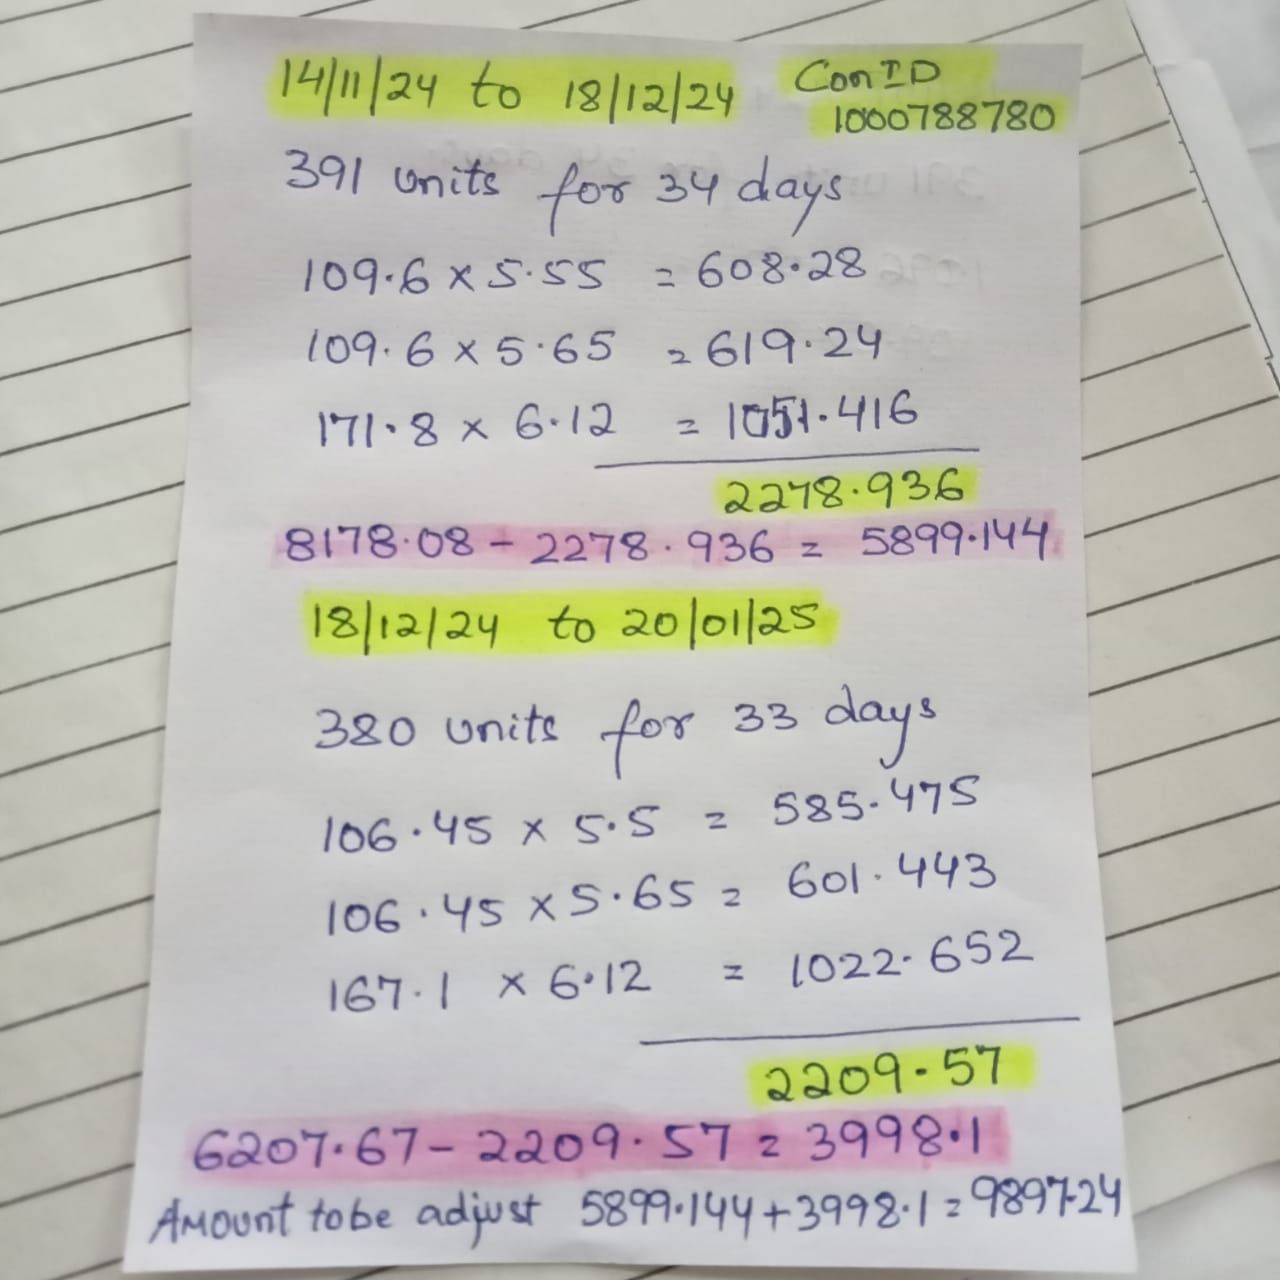 14/11/24 to 18/12/24 Con ID
1000788780
391 units for 34 days
109.6 x 5.55 = 608.28
109.6 x 5.65 = 619.24
171.8 x 6.12 = 1051.416
2278.936
8178.08 - 2278.936 = 5899.144
18/12/24 to 20/01/25
380 units for 33 days
106.45 x 5.5 = 585.475
106.45 x 5.65 = 601.443
167.1 x 6.12 = 1022.652
2209.57
6207.67 - 2209.57 = 3998.1
Amount to be adjust 5899.144 + 3998.1 = 9897.24